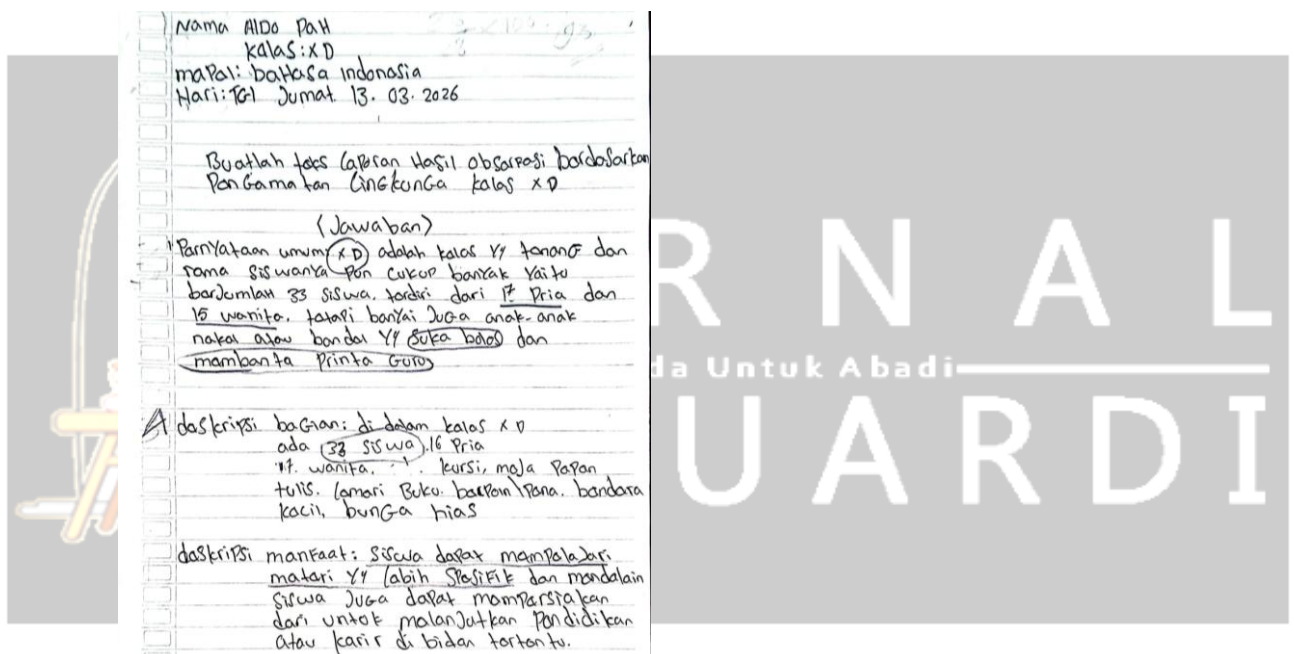 Nama Aldo Pah
Kalas: X D
maPal: baHasa indonasia
Hari: TGl Jumat 13. 03. 2026
Buatlah taks laporan Hasil obsarPasi bardasarkan
PanGamatan linGkunGa kalas X D
(Jawaban)
ParnYataan umum X D adalah kalas YG tananG dan
rama siswanYa Pon cukup banYak Yaitu
barJumlah 33 siswa. tardiri dari 17 Pria dan
15 wanita. tatapi banYai JuGa anak-anak
nakal atau bandal YG suka bolos dan
mambanta Printa Guru
A
daskripsi baGian: di dalam kalas X D
ada 33 siswa. 16 Pria
17. wanita. kursi, maja PaPan
tulis. lamari Buku. bandara
kacil, bunGa hias
daskriPsi manFaat: siswa daPat mamPalaJari
matari YG labih SPasiFik dan mandalain
siswa JuGa daPat mamParsiaPkan
dari untok malanJutkan Pandidikan
atau karir di bidan tartantu.
R N A L
da Untuk Abadi
U A R D I